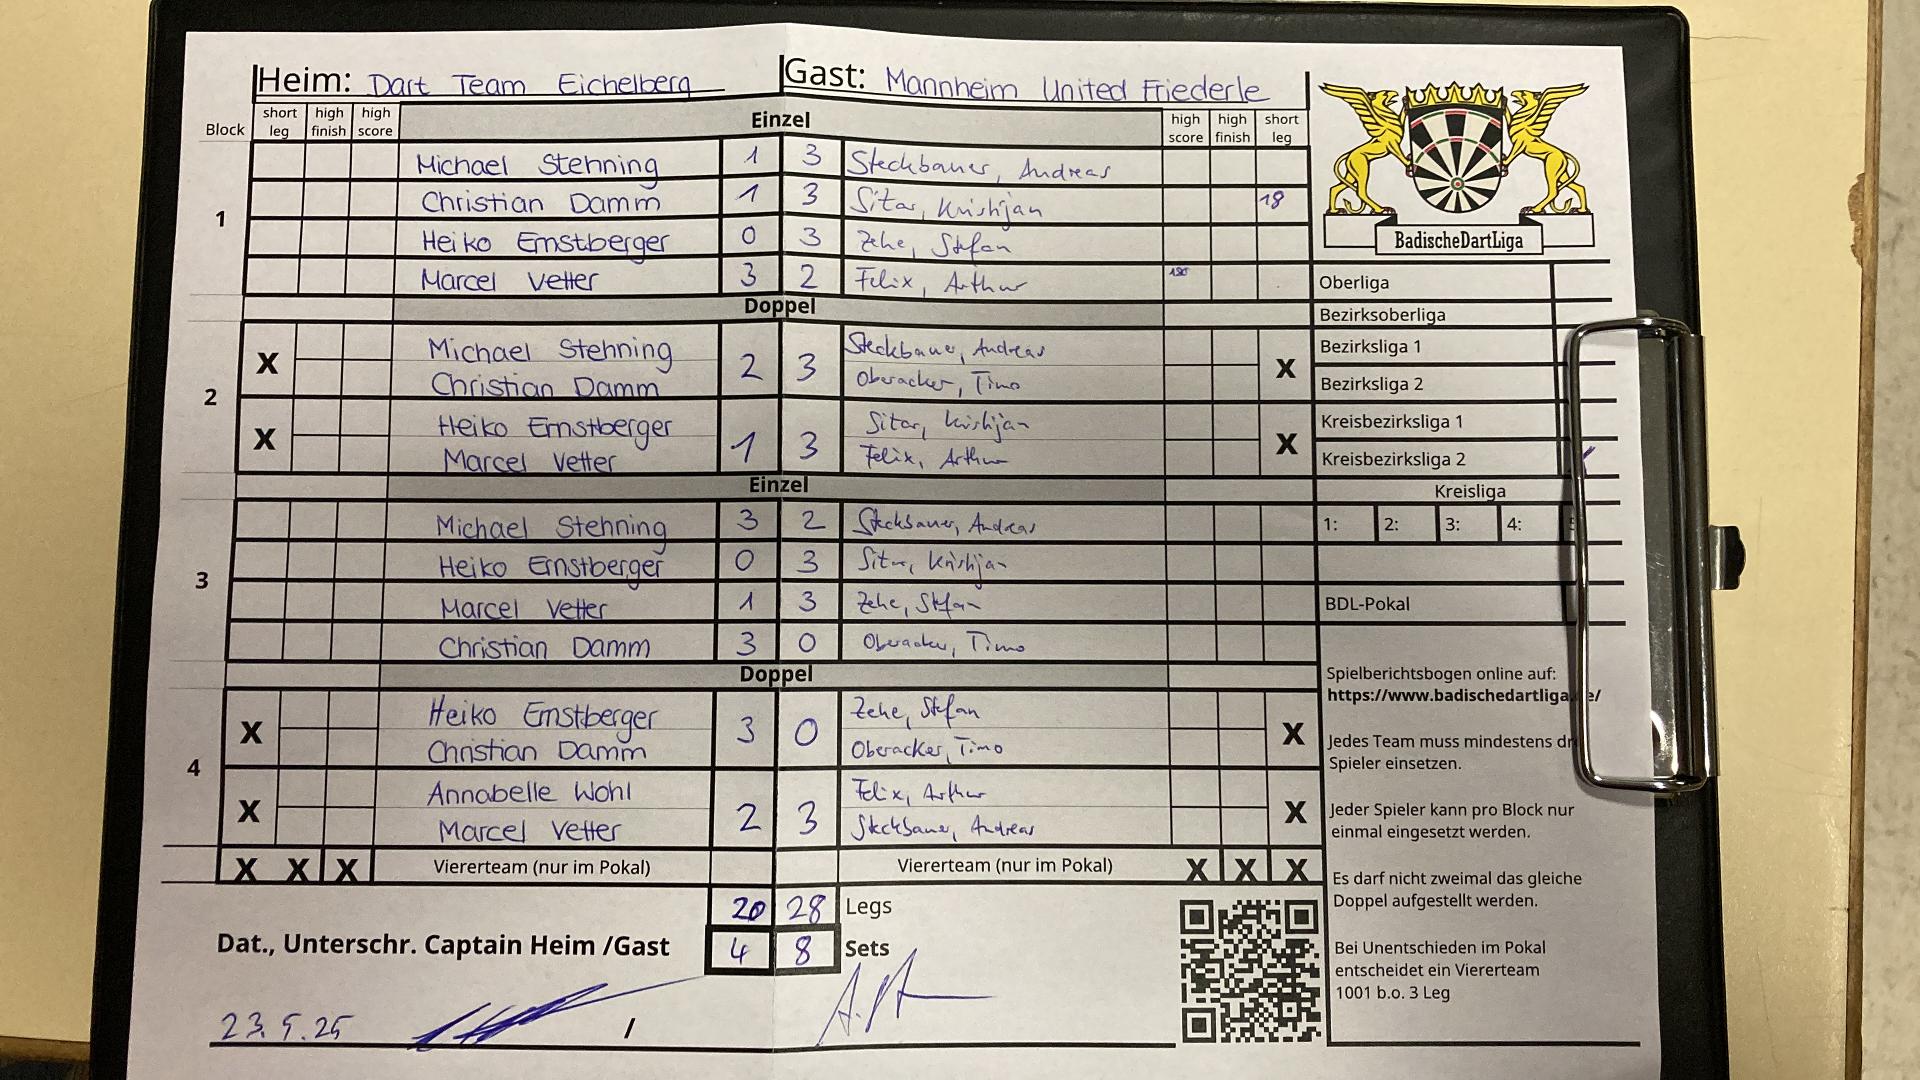 Heim: Dart Team Eichelberg Gast: Mannheim United Friederle
Block short leg high finish high score Einzel high score high finish short leg
1
Michael Stehning 1 3 Steckbauer, Andreas
Christian Damm 1 3 Sitar, Kristijan 18
Heiko Ernstberger 0 3 Zehe, Stefan
Marcel Vetter 3 2 Felix, Arthur 180
Doppel
2
X Michael Stehning 2 3 Steckbauer, Andreas X
Christian Damm Oberacker, Timo
X Heiko Ernstberger 1 3 Sitar, Kristijan X
Marcel Vetter Felix, Arthur
Einzel
3
Michael Stehning 3 2 Steckbauer, Andreas
Heiko Ernstberger 0 3 Sitar, Kristijan
Marcel Vetter 1 3 Zehe, Stefan
Christian Damm 3 0 Oberacker, Timo
Doppel
4
X Heiko Ernstberger 3 0 Zehe, Stefan X
Christian Damm Oberacker, Timo
X Annabelle Wohl 2 3 Felix, Arthur X
Marcel Vetter Steckbauer, Andreas
X X X Viererteam (nur im Pokal) Viererteam (nur im Pokal) X X X
20 28 Legs
Dat., Unterschr. Captain Heim /Gast 4 8 Sets
23.5.25 /
BadischeDartLiga
Oberliga
Bezirksoberliga
Bezirksliga 1
Bezirksliga 2
Kreisbezirksliga 1
Kreisbezirksliga 2
Kreisliga
1: 2: 3: 4:
BDL-Pokal
Spielberichtsbogen online auf:
https://www.badischedartliga.de/
Jedes Team muss mindestens
Spieler einsetzen.
Jeder Spieler kann pro Block nur
einmal eingesetzt werden.
Es darf nicht zweimal das gleiche
Doppel aufgestellt werden.
Bei Unentschieden im Pokal
entscheidet ein Viererteam
1001 b.o. 3 Leg